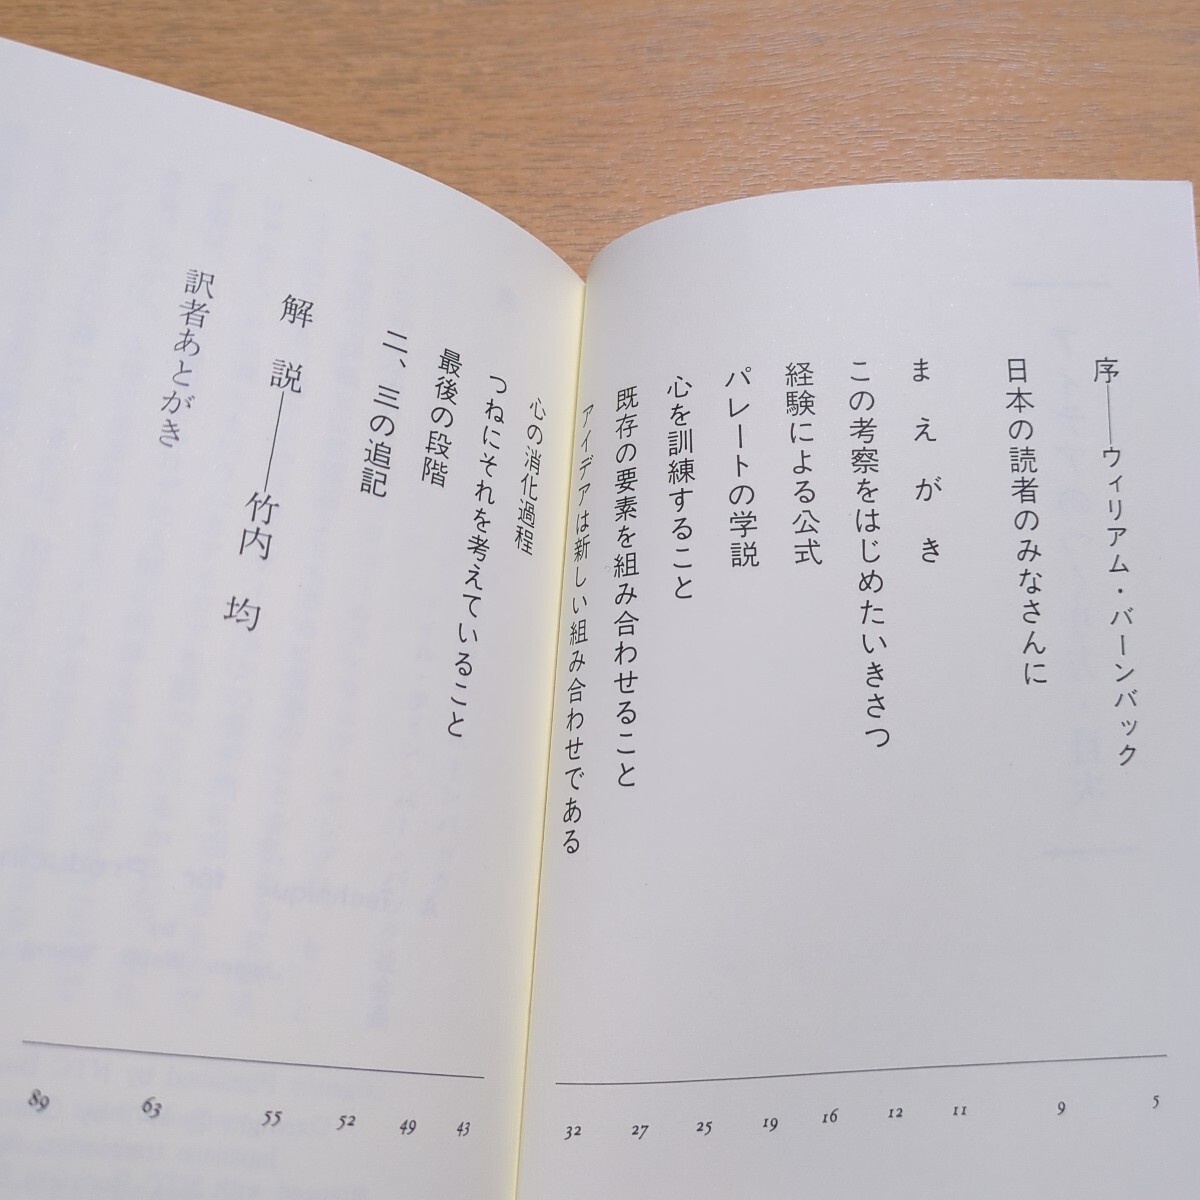 序――ウィリアム・バーンバック 5
日本の読者のみなさんに 9
まえがき 11
この考察をはじめたいきさつ 12
経験による公式 16
パレートの学説 19
心を訓練すること 25
既存の要素を組み合わせること 27
アイデアは新しい組み合わせである 32
心の消化過程 43
つねにそれを考えていること 49
最後の段階 52
二、三の追記 55
解説――竹内 均 63
訳者あとがき 89